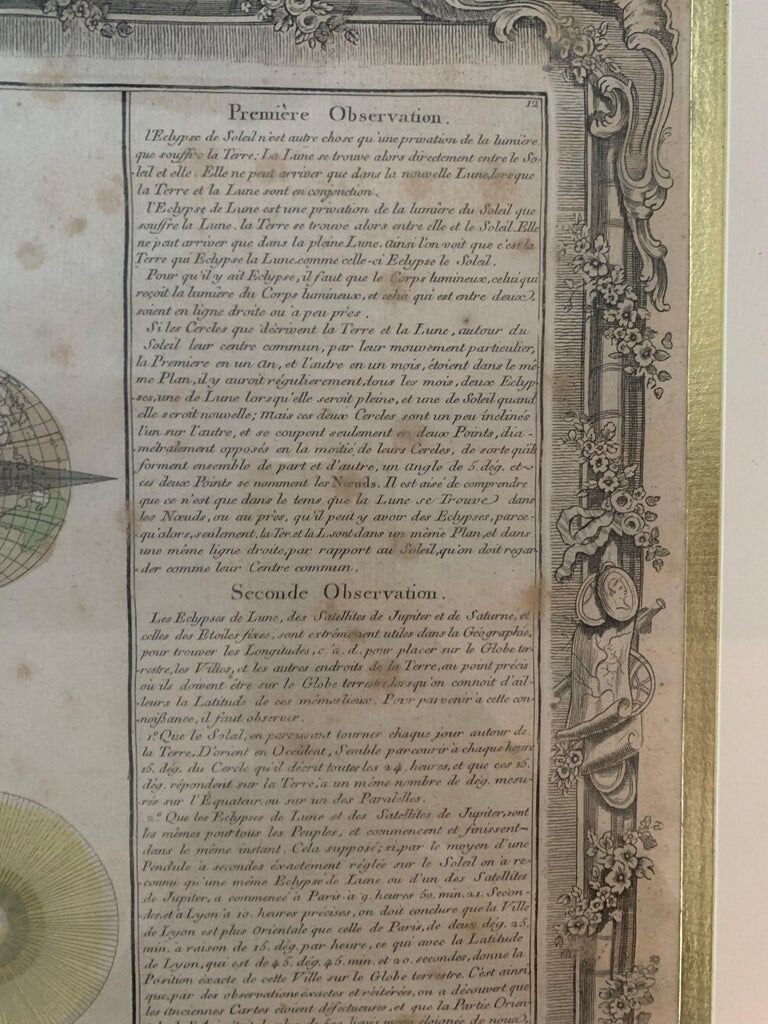 12
Première Observation.
l'Eclypse de Soleil n'est autre chose qu'une privation de la lumière
que souffre la Terre; La Lune se trouve alors directement entre le So-
leil et elle. Elle ne peut arriver que dans la nouvelle Lune, lorsque
la Terre et la Lune sont en conjonction.
l'Eclypse de Lune est une privation de la lumière du Soleil que
souffre la Lune. la Terre se trouve alors entre elle et le Soleil. Elle
ne peut arriver que dans la pleine Lune. ainsi l'on voit que c'est la
Terre qui Eclypse la Lune. comme celle-ci Eclypse le Soleil.
Pour qu'il y ait Eclypse, il faut que le Corps lumineux, celui qui
reçoit la lumière du Corps lumineux, et celui qui est entre deux,
soient en ligne droite ou à peu près.
Si les Cercles que décrivent la Terre et la Lune, autour du
Soleil leur centre commun, par leur mouvement particulier,
la Premiere en un an, et l'autre en un mois, étoient dans le mê-
me Plan, il y auroit régulierement, tous les mois, deux Eclyp-
ses, une de Lune lorsqu'elle seroit pleine, et une de Soleil quand
elle seroit nouvelle; mais ces deux Cercles sont un peu inclinés
l'un sur l'autre, et se coupent seulement en deux Points, dia-
métralement opposés en la moitié de leurs Cercles, de sorte qu'ils
forment ensemble de part et d'autre, un angle de 5. dég. et
ces deux Points se nomment les Nœuds. Il est aisé de comprendre
que ce n'est que dans le tems que la Lune se Trouve dans
les Nœuds, ou au près, qu'il peut y avoir des Eclypses, parce-
qu'alors, seulement, la Ter. et la L. sont dans un même Plan, et dans
une même ligne droite, par rapport au Soleil, qu'on doit regar-
der comme leur Centre commun.
Seconde Observation.
Les Eclypses de Lune, des Satellites de Jupiter et de Saturne, et
celles des Etoiles fixes, sont extrêmement utiles dans la Géographie,
pour trouver les Longitudes, c. à. d. pour placer sur le Globe ter-
restre, les Villes, et les autres endroits de la Terre, au point précis
où ils doivent être sur le Globe terrestre, lorsqu'on connoit d'ail-
leurs la Latitude de ces mêmes lieux. Pour parvenir à cette con-
noißance, il faut observer.
1.º Que le Soleil, en paroissant tourner chaque jour autour de
la Terre, D'orient en Occident, Semble parcourir à chaque heure
15. dég. du Cercle qu'il décrit toutes les 24. heures, et que ces 15.
dég. répondent sur la Terre, à un même nombre de dég. mesu-
rés sur l'Équateur, ou sur un des Paralelles.
2.º Que les Eclypses de Lune et des Satellites de Jupiter, sont
les mêmes pour tous les Peuples, et commencent et finissent
dans le même instant. Cela supposé; si, par le moyen d'une
Pendule à secondes éxactement réglée sur le Soleil on a re-
connu qu'une même Eclypse de Lune ou d'un des Satellites
de Jupiter, a commencé à Paris à 9. heures 50. min. 21. Secon-
des, et à Lyon à 10. heures précises, on doit conclure que la Ville
de Lyon est plus Orientale que celle de Paris, de deux dég. 25.
min. à raison de 15. dég. par heure, ce qui avec la Latitude
de Lyon, qui est de 45. dég. 45. min. et 20. secondes, donne la
Position éxacte de cette Ville sur le Globe terrestre. C'est ainsi,
que, par des observations éxactes et réiterées, on a découvert que
les anciennes Cartes étoient défectueuses, et que la Partie Orien-